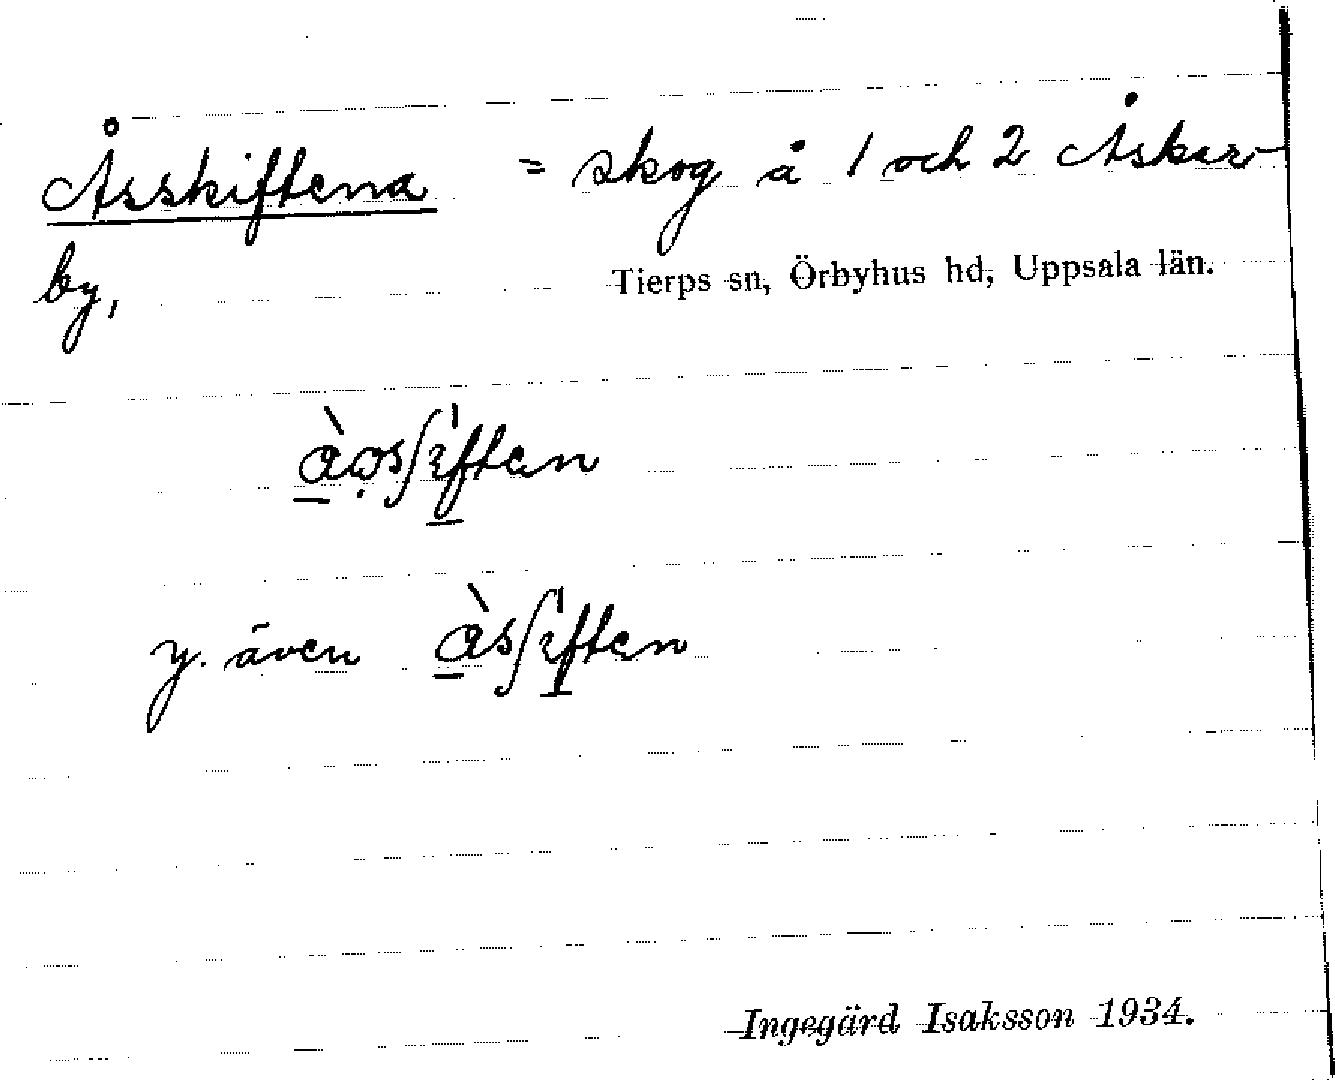 Åsskiftena = skog å 1 och 2 Åsker-
by, Tierps sn, Örbyhus hd, Uppsala län.
à̱ọsʃi̱̍ften
y. även à̱sʃi̱̍ften
Ingegärd Isaksson 1934.